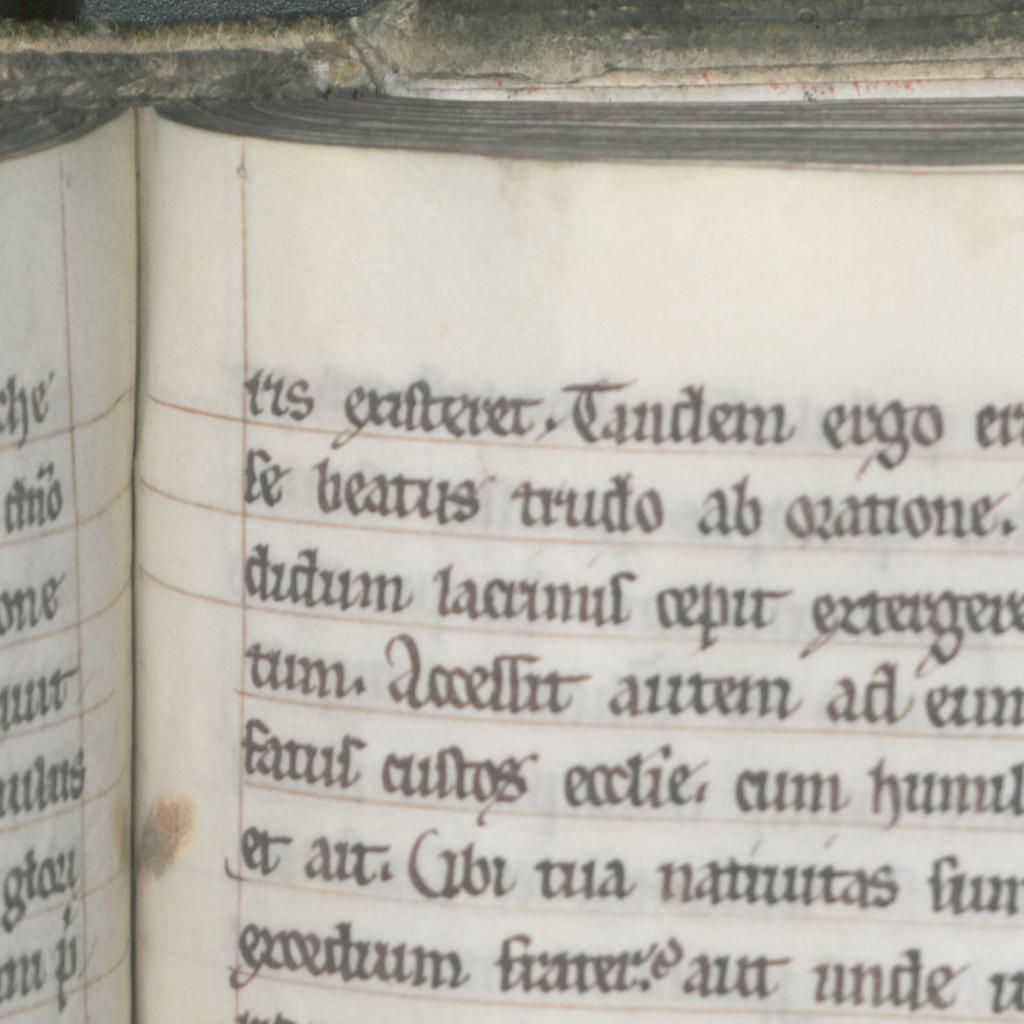 che
dño
one
uit
ulus
głou
m p̍
tͥis existeret. Tandem ergo
se beatus trudo ab oratione.
dictum lacrimis cepit extergere
tum. Accessit autem ad eum
fatus custos ecclie. cum humil
et ait. Ubi tua natiuitas sum
exordium frater? aut unde